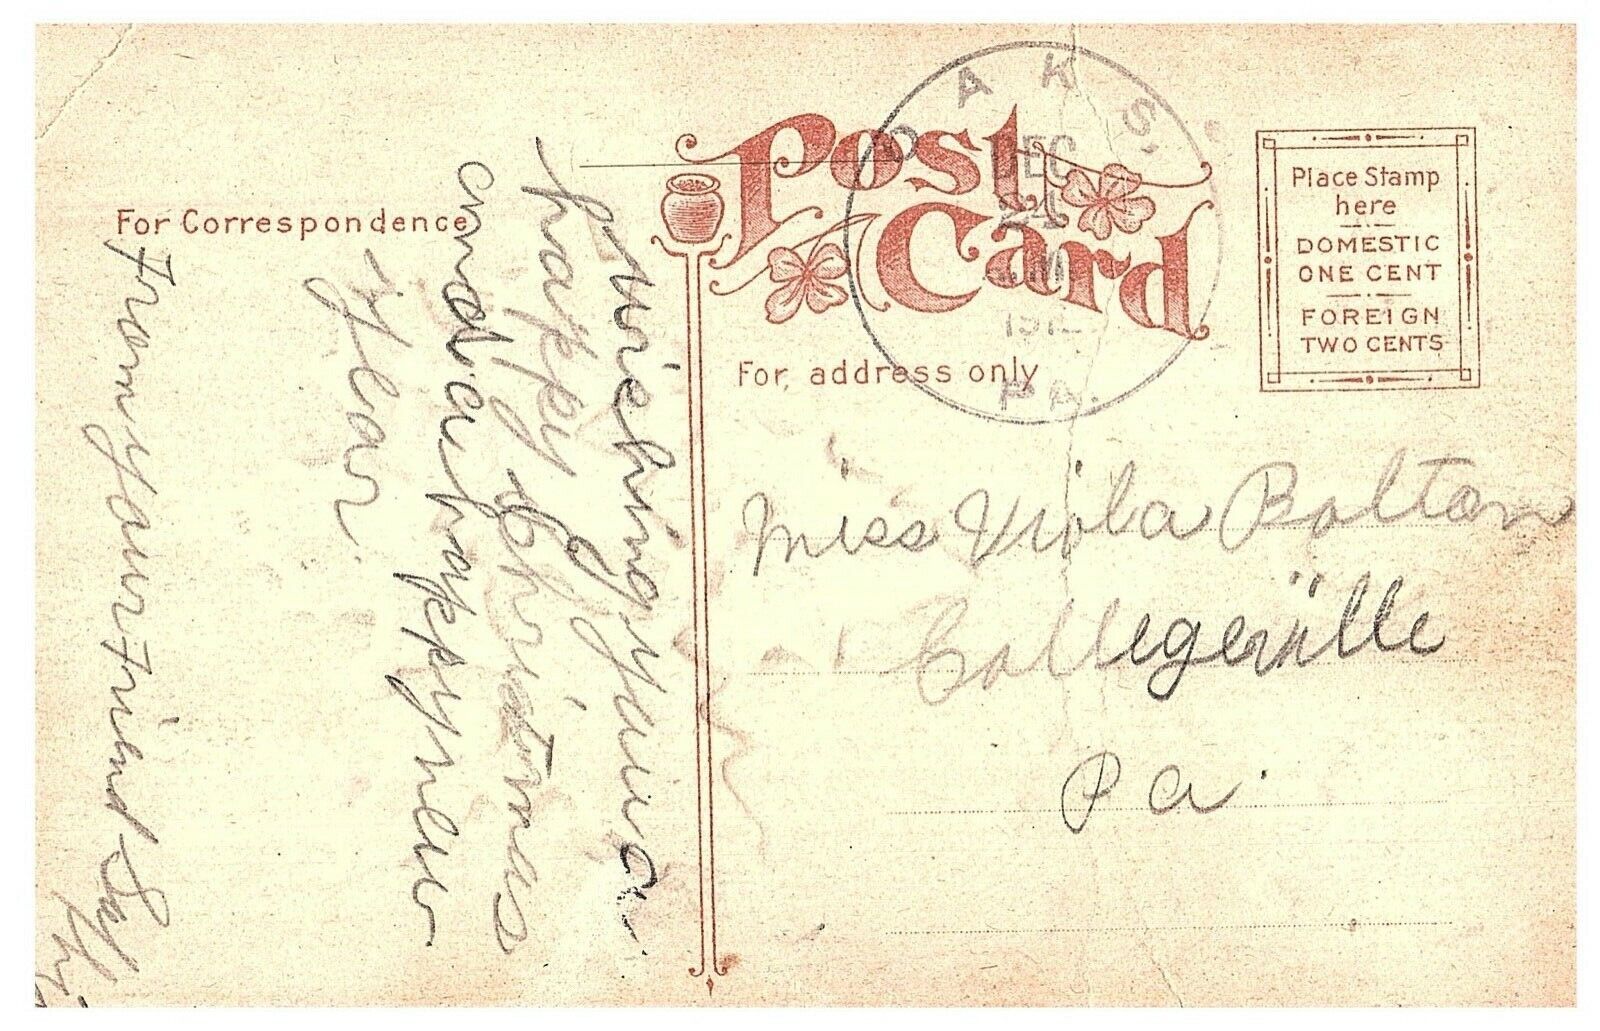 Post Card
For Correspondence
For address only
Place Stamp
here
DOMESTIC
ONE CENT
FOREIGN
TWO CENTS
OAKS.
DEC
24
PA.
Miss Viola Bolton
Collegeville
Pa.
Wishing you a
happy Christmas
and a happy new
year.
From your Friend